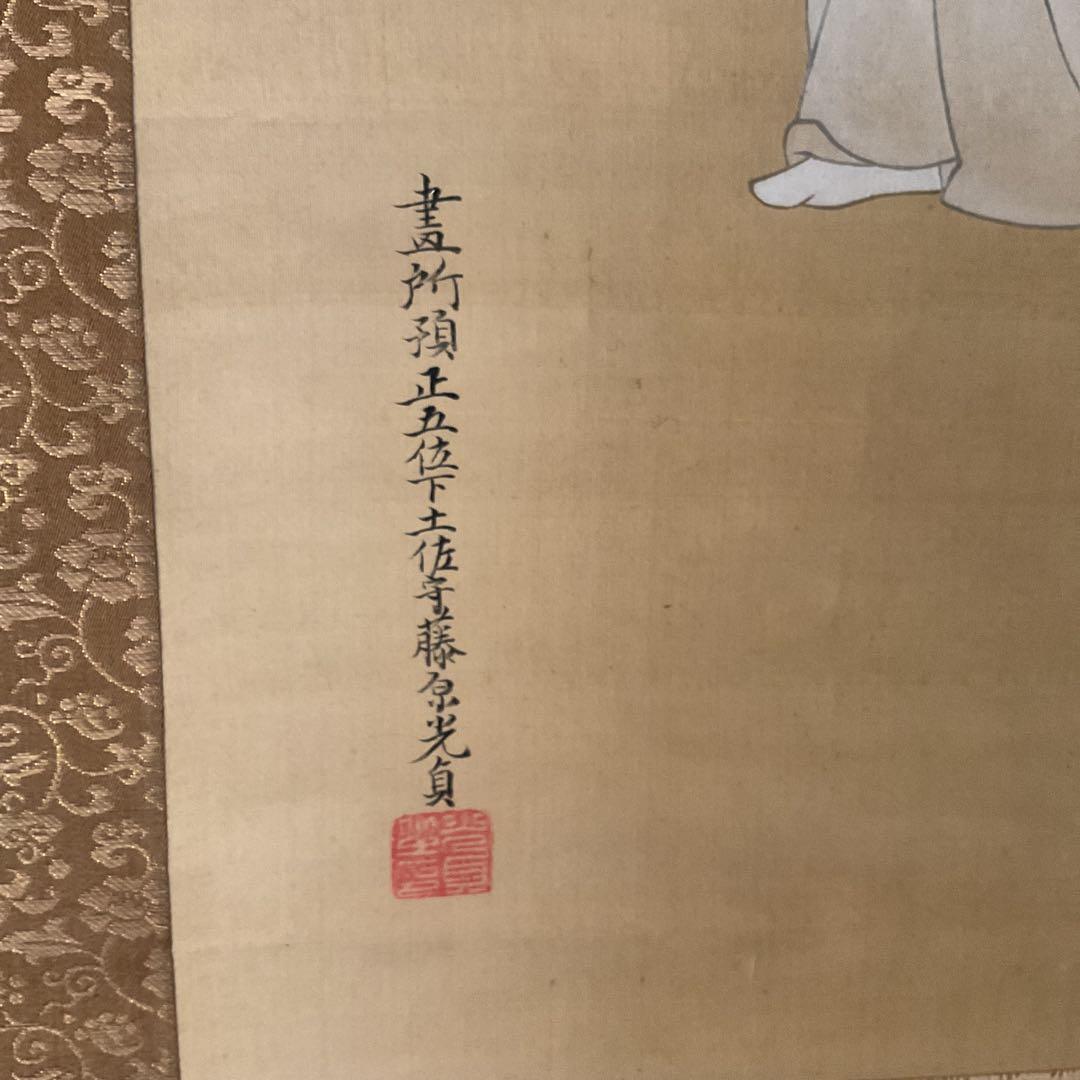 畫所預正五位下土佐守藤原光貞